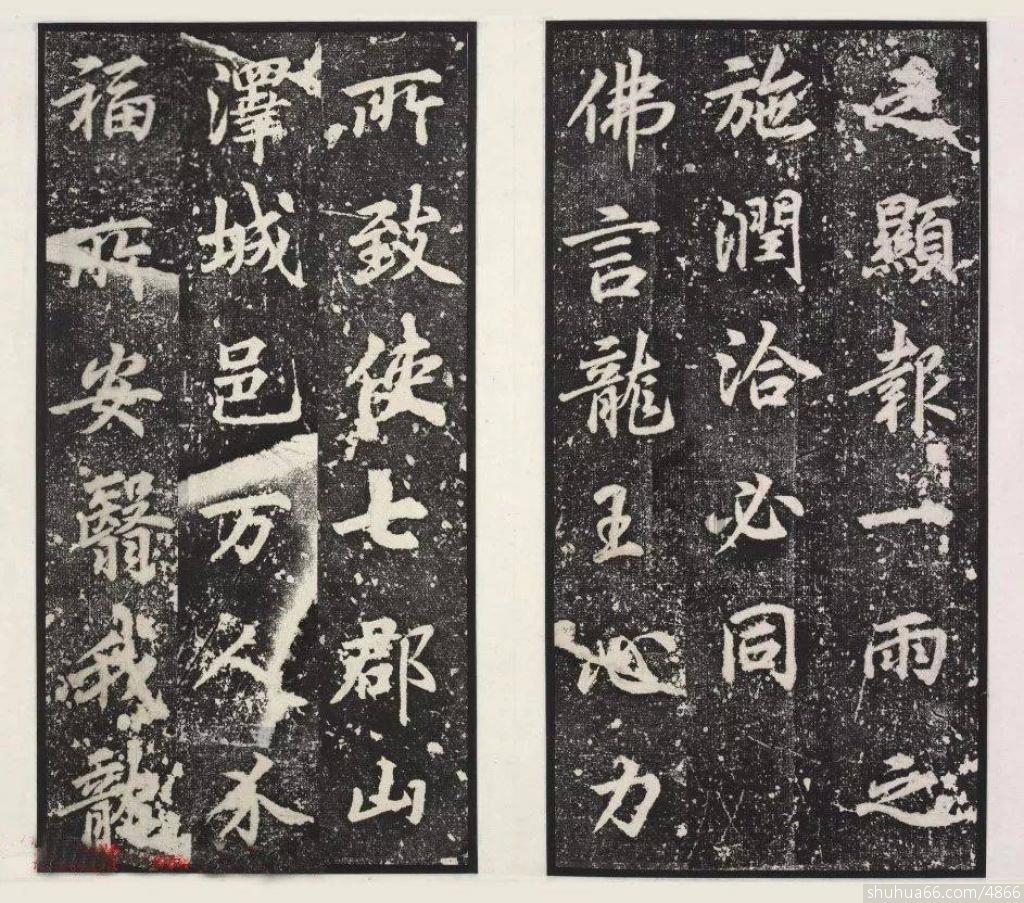 之顯報一雨之
施潤洽必同
佛言龍王心力
所致使七郡山
澤城邑万人介
福所安我龍
shuhua66.com/4866